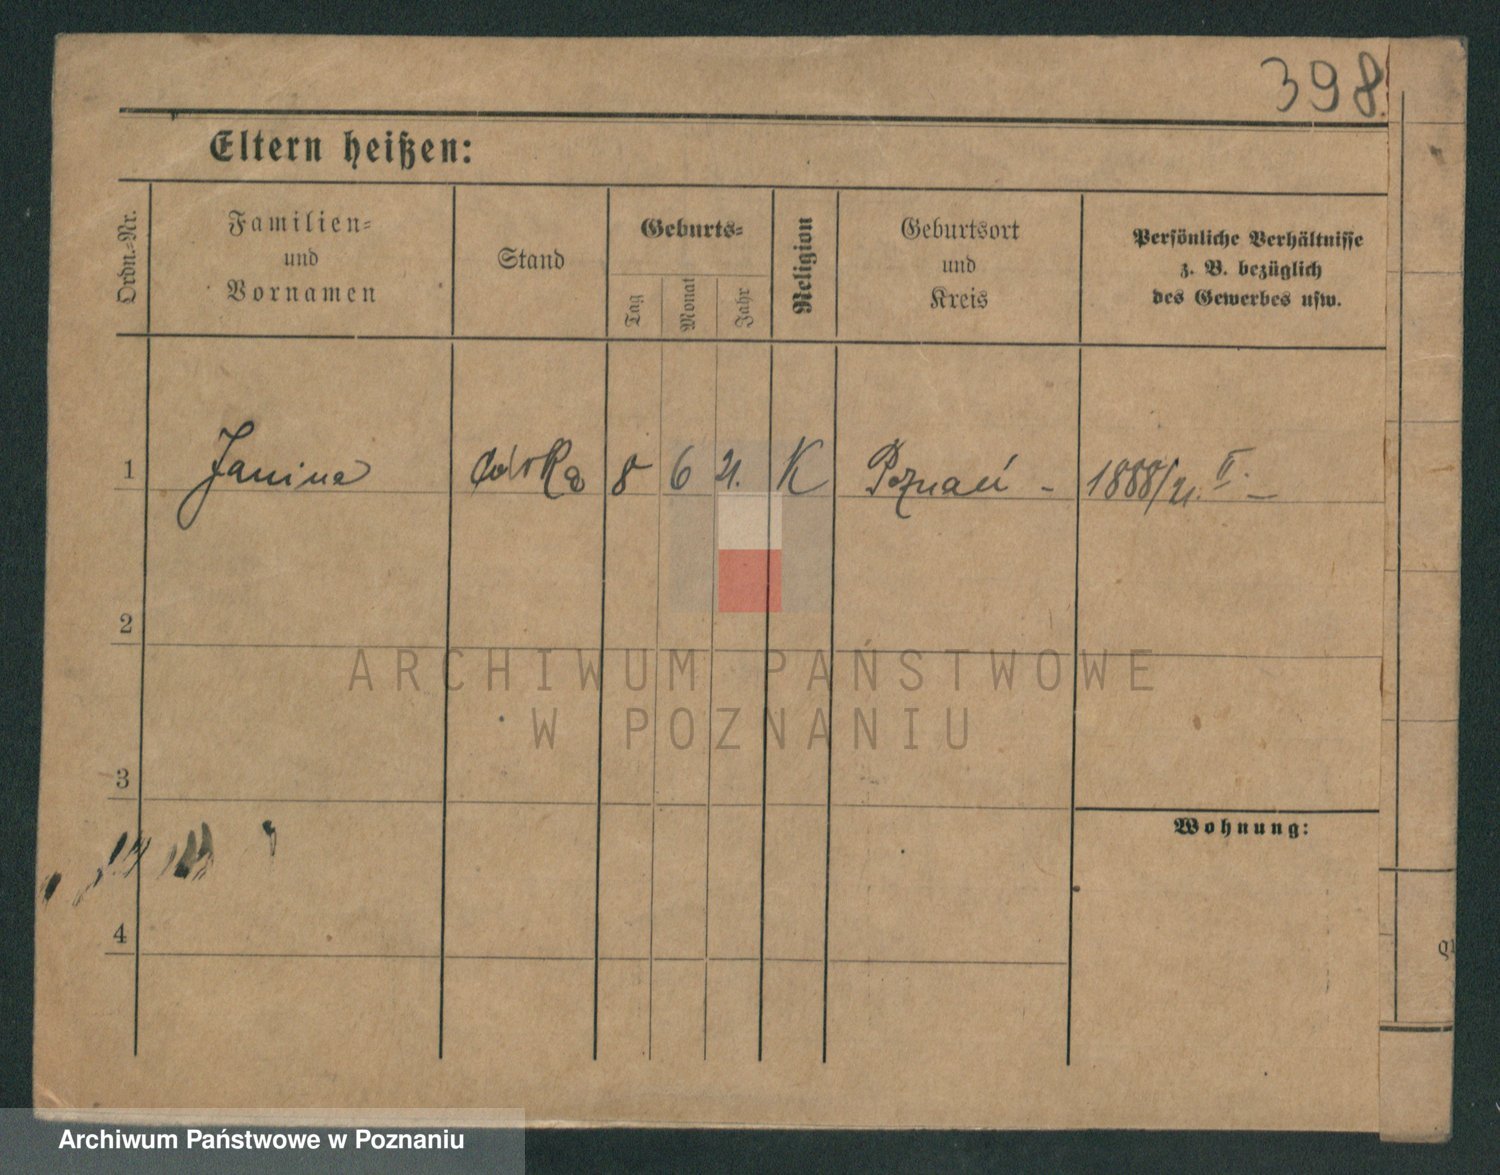 398.
Eltern heißen:
Ordn.-Nr.
Familien-
und
Vornamen
Stand
Geburts-
Tag
Monat
Jahr
Religion
Geburtsort
und
Kreis
Persönliche Verhältnisse
z. B. bezüglich
des Gewerbes usw.
1 Janina córka 8 6 21. K Poznań - 1888/21. II. -
2
3
Wohnung:
4
ARCHIWUM PAŃSTWOWE
W POZNANIU
Archiwum Państwowe w Poznaniu